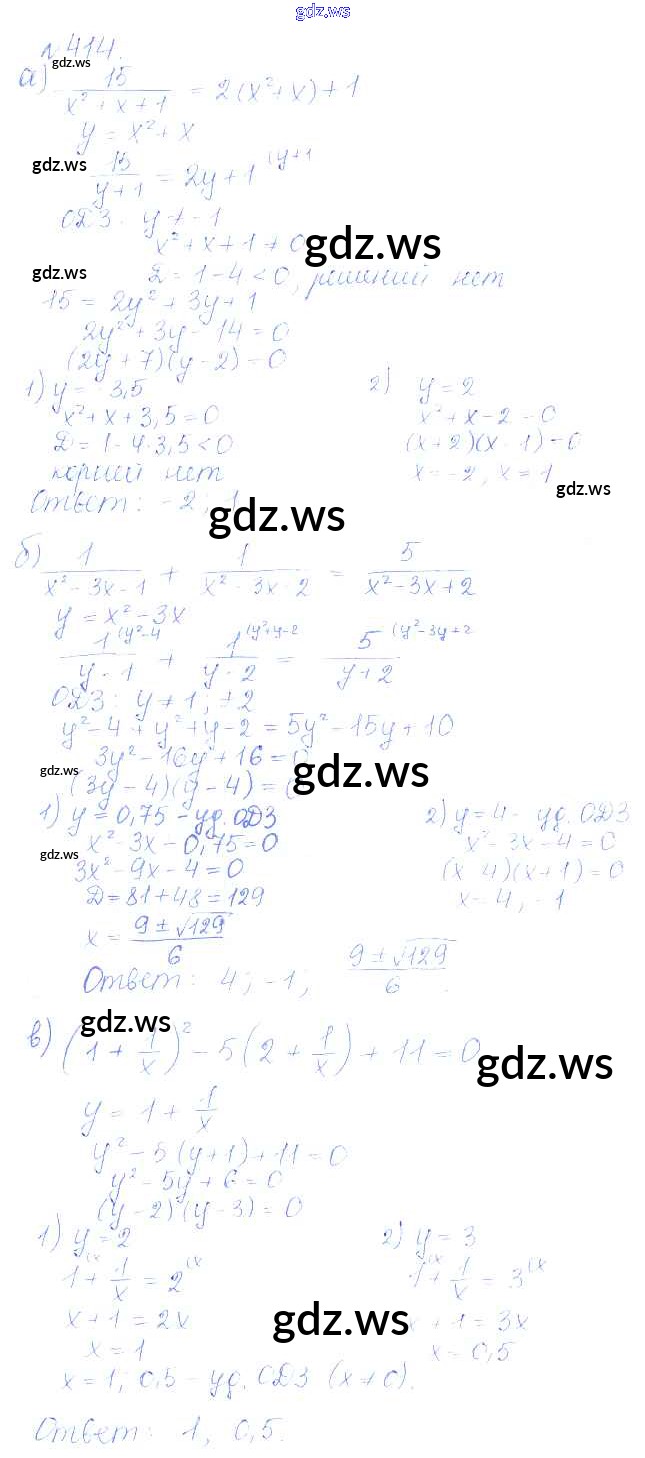 gdz.ws
№ 414.
gdz.ws
а) 15/(x² + x + 1) = 2(x² + x) + 1
y = x² + x
gdz.ws
15/(y + 1) = 2y + 1 (y+1
ОДЗ: y ≠ -1
x² + x + 1 ≠ 0
gdz.ws
gdz.ws
D = 1 - 4 < 0, решений нет
15 = 2y² + 3y + 1
2y² + 3y - 14 = 0
(2y + 7)(y - 2) = 0
1) y = -3,5
x² + x + 3,5 = 0
D = 1 - 4·3,5 < 0
корней нет
2) y = 2
x² + x - 2 = 0
(x + 2)(x - 1) = 0
x = -2, x = 1
gdz.ws
Ответ: -2; 1
gdz.ws
б) 1/(x² - 3x - 1) + 1/(x² - 3x - 2) = 5/(x² - 3x + 2)
y = x² - 3x
1/(y - 1) (y²-4 + 1/(y - 2) (y²+y-2 = 5/(y + 2) (y²-3y+2
ОДЗ: y ≠ 1; ±2
y² - 4 + y² + y - 2 = 5y² - 15y + 10
3y² - 16y + 16 = 0
gdz.ws
gdz.ws
(3y - 4)(y - 4) = 0
1) y = 0,75 - уд. ОДЗ
x² - 3x - 0,75 = 0
gdz.ws
3x² - 9x - 4 = 0
D = 81 + 48 = 129
x = (9 ± √129)/6
2) y = 4 - уд. ОДЗ
x² - 3x - 4 = 0
(x - 4)(x + 1) = 0
x = 4, -1
Ответ: 4; -1; (9 ± √129)/6.
gdz.ws
в) (1 + 1/x)² - 5(2 + 1/x) + 11 = 0
gdz.ws
y = 1 + 1/x
y² - 5(y + 1) + 11 = 0
y² - 5y + 6 = 0
(y - 2)(y - 3) = 0
1) y = 2
1 (x + 1/x = 2 (x
x + 1 = 2x
x = 1
2) y = 3
1 (x + 1/x = 3 (x
x + 1 = 3x
x = 0,5
gdz.ws
x = 1; 0,5 - уд. ОДЗ (x ≠ 0).
Ответ: 1, 0,5.